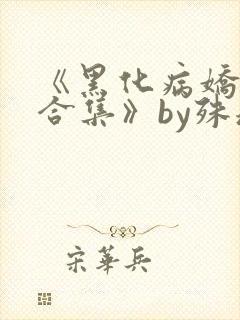 《黑化病嬌
合集》by殊
宋華兵